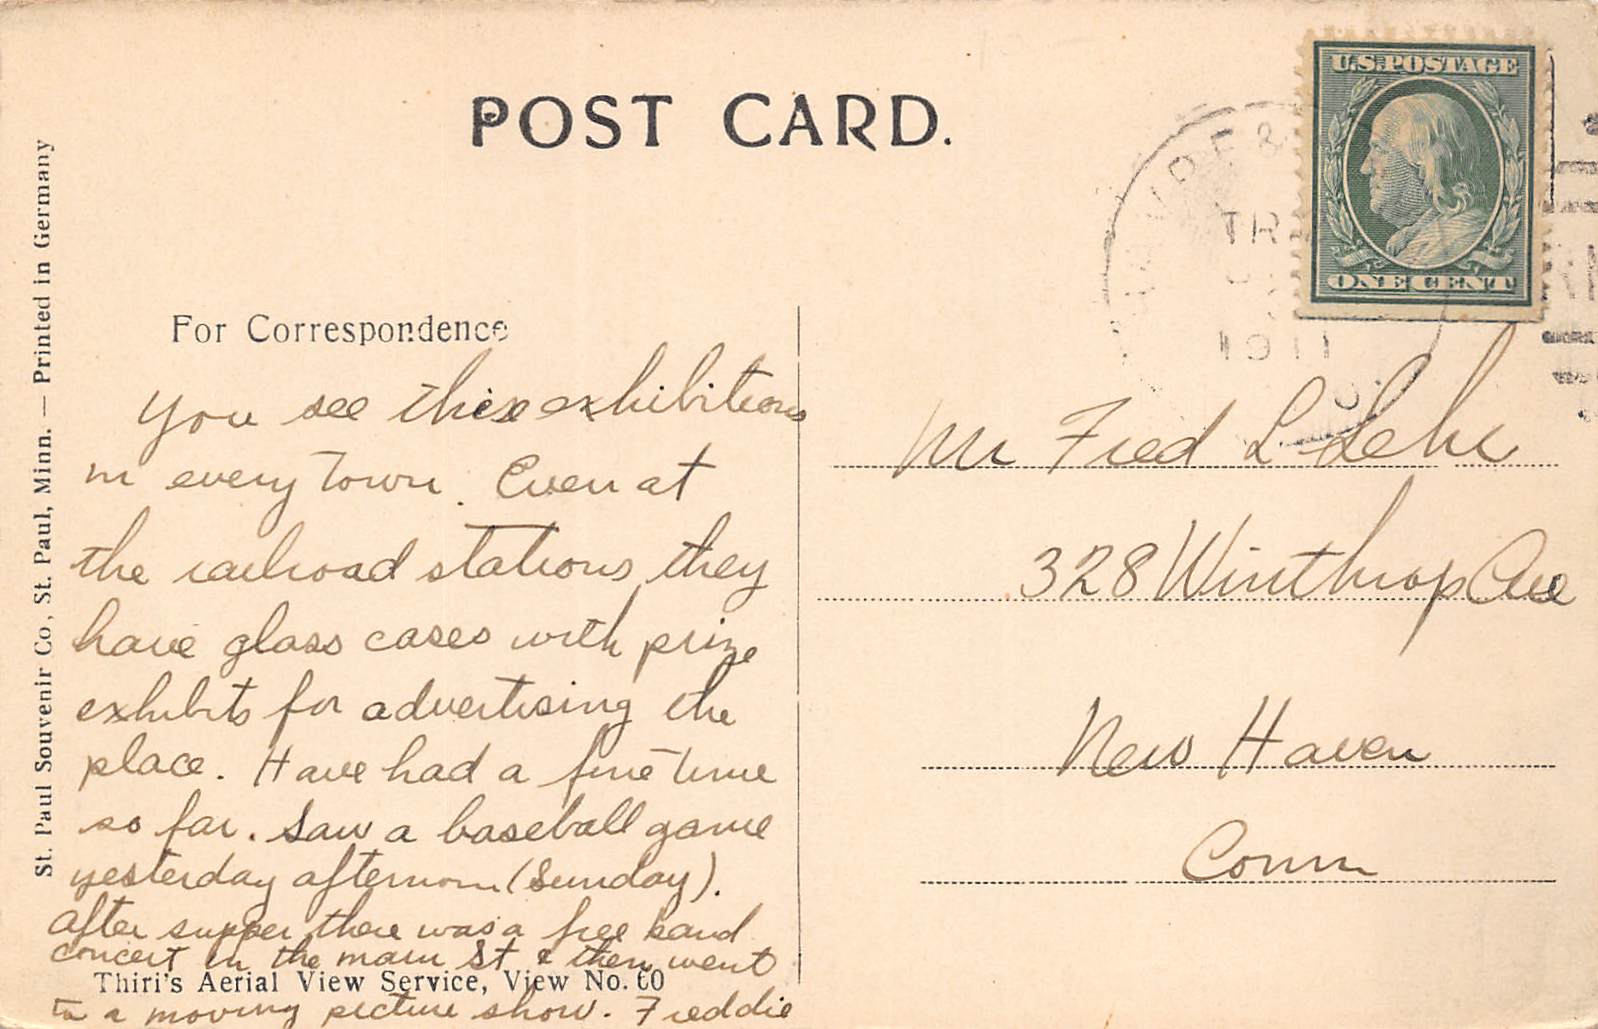 POST CARD.
U.S. POSTAGE
ONE CENT
& 
TR
1911
St. Paul Souvenir Co., St. Paul, Minn. — Printed in Germany
For Correspondence
You see these exhibitions
in every town. Even at
the railroad stations they
have glass cases with prize
exhibits for advertising the
place. Have had a fine time
so far. Saw a baseball game
yesterday afternoon (Sunday).
After supper there was a free band
concert in the main St & then went
Thiri's Aerial View Service, View No. 60
to a moving picture show. Freddie
Mr Fred L Lehr
328 Winthrop Ave
New Haven
Conn